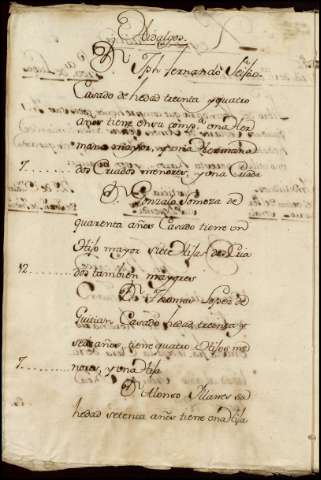 Hidalgos.
D. Jph fernando Seijas
Casado de hedad treinta y quatro
años tiene en su comp.ª una her
mana mayor, y otra hermana
7......... dos Criados menores, y una Criada
D. Gonzalo Somoza de
quarenta años Casado tiene un
Hijo mayor siete Hijas dos Cria
12......... dos tambien mayores
D. Thomas Lopez de
Guitian Casado hedad treinta y
seis años, tiene quatro Hijos me
7......... nores, y una Hija
D. Alonso Illanes de
hedad setenta años tiene una Hija